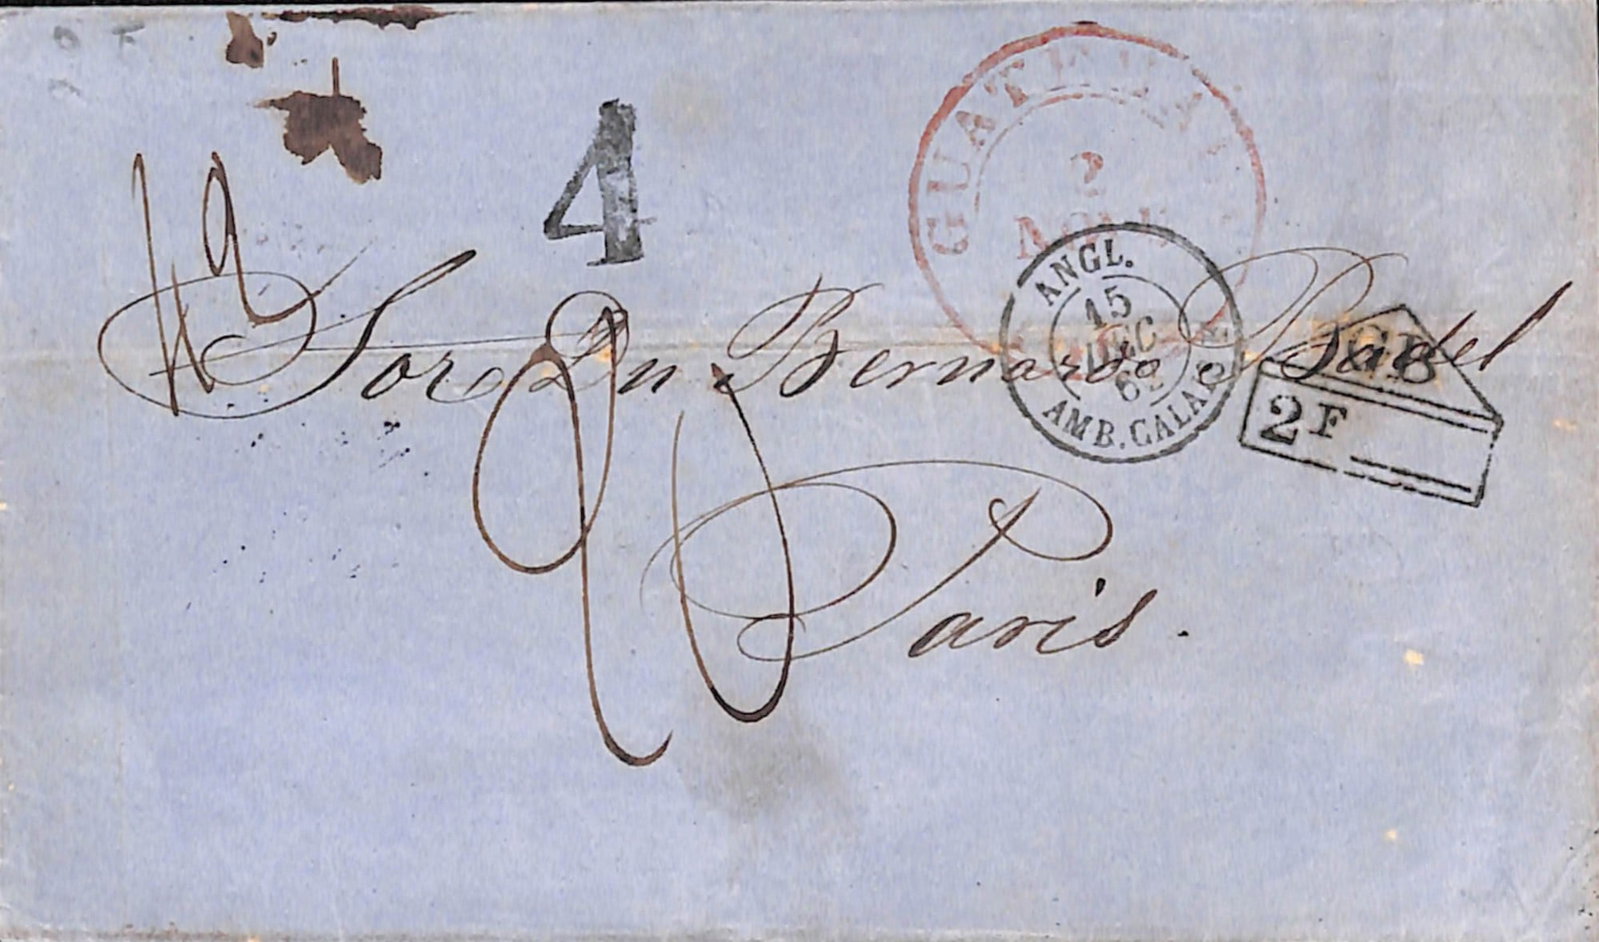 4
GUATEMALA
2
NOV.
ANGL.
15
DEC
AMB. CALAIS
GB
2F
Sor. Dn Bernardo Badel
Paris.